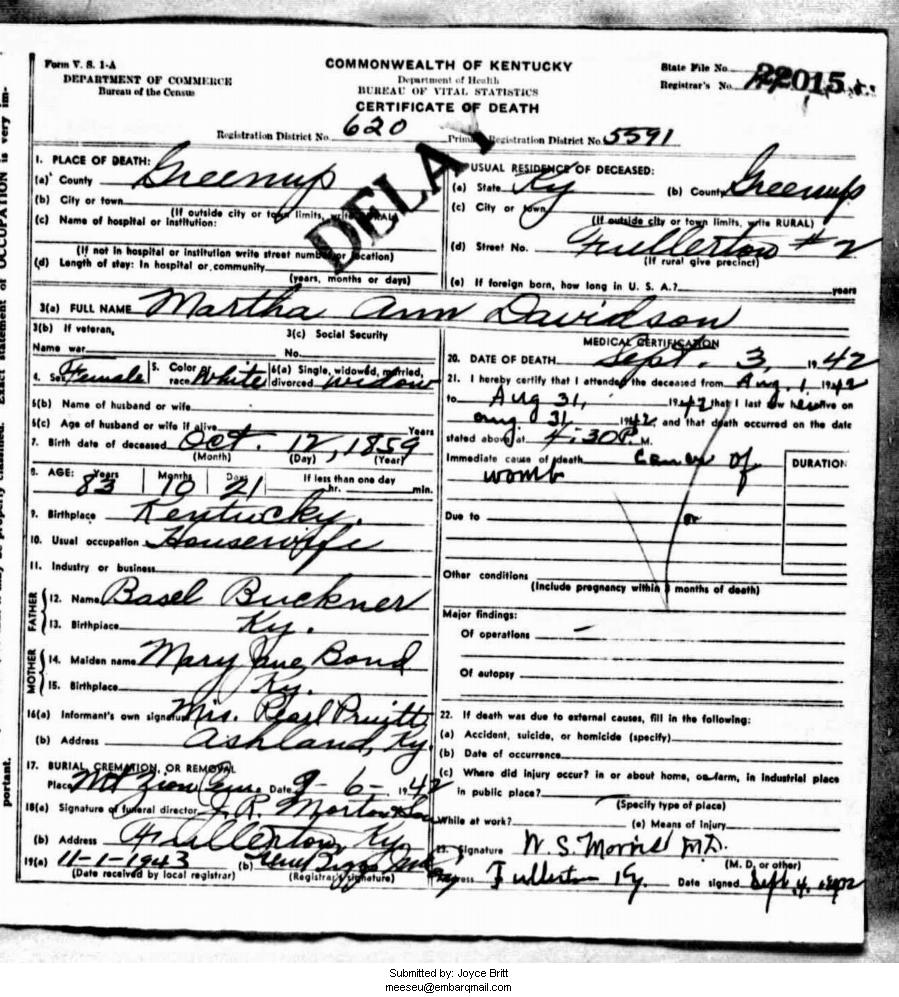 Form V. S. 1-A
DEPARTMENT OF COMMERCE
Bureau of the Census
COMMONWEALTH OF KENTUCKY
Department of Health
BUREAU OF VITAL STATISTICS
CERTIFICATE OF DEATH
State File No. 22015
Registrar's No.
Registration District No. 620
Primary Registration District No. 5591
DELAY
1. PLACE OF DEATH:
(a) County Greenup
(b) City or town
(If outside city or town limits, write RURAL)
(c) Name of hospital or institution:
(If not in hospital or institution write street number or location)
(d) Length of stay: In hospital or community
(years, months or days)
USUAL RESIDENCE OF DECEASED:
(a) State Ky (b) County Greenup
(c) City or town
(If outside city or town limits, write RURAL)
(d) Street No. Fullerton #2
(If rural give precinct)
(e) If foreign born, how long in U. S. A.? years
3(a) FULL NAME Martha Ann Davidson
3(b) If veteran,
Name war
3(c) Social Security
No.
4. Sex Female 5. Color race White 6(a) Single, widowed, married, divorced widow
6(b) Name of husband or wife
6(c) Age of husband or wife if alive Years
7. Birth date of deceased Oct. 12, 1859
(Month) (Day) (Year)
8. AGE: Years 83 Months 10 Days 21 If less than one day hr. min.
9. Birthplace Kentucky.
10. Usual occupation Housewife
11. Industry or business
FATHER
12. Name Basel Buckner
13. Birthplace Ky.
MOTHER
14. Maiden name Mary Jane Bond
15. Birthplace Ky.
16(a) Informant's own signature Mrs. Pearl Pruitt
(b) Address Ashland, Ky.
17. BURIAL, CREMATION, OR REMOVAL
Place Mt Zion Cem. Date 9-6-, 1942
18(a) Signature of funeral director J. R. Morton & Son
(b) Address Fullerton, Ky.
19(a) 11-1-1943 (b)
(Date received by local registrar) (Registrar's signature)
MEDICAL CERTIFICATION
20. DATE OF DEATH Sept. 3, 1942
21. I hereby certify that I attended the deceased from Aug. 1, 1942
to Aug 31, 1942 that I last saw her alive on
Aug 31 1942, and that death occurred on the date
stated above at 4:30 P. M.
Immediate cause of death Cancer of
womb
DURATION
Due to or
Other conditions
(Include pregnancy within 3 months of death)
Major findings:
Of operations –
Of autopsy
22. If death was due to external causes, fill in the following:
(a) Accident, suicide, or homicide (specify)
(b) Date of occurrence
(c) Where did injury occur? in or about home, on farm, in industrial place
in public place?
(Specify type of place)
While at work? (e) Means of injury
23. Signature W. S. Morris M.D.
(M. D. or other)
Address Fullerton Ky. Date signed Sept. 4, 1942
portant.
Submitted by: Joyce Britt
meeseu@embarqmail.com